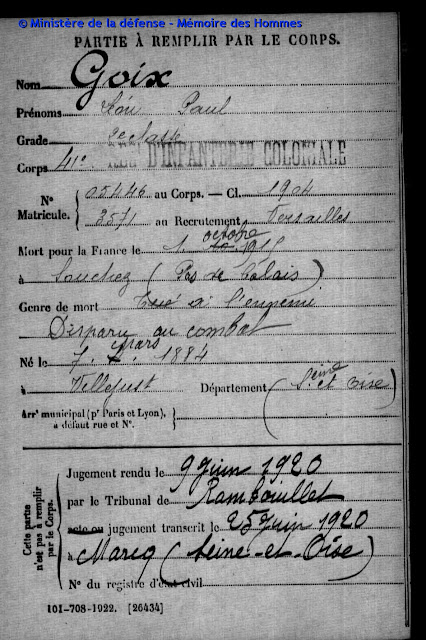 © Ministère de la défense - Mémoire des Hommes
PARTIE À REMPLIR PAR LE CORPS.
Nom Goix
Prénoms Léon Paul
Grade 2e classe
Corps 41e RÉG. D'INFANTERIE COLONIALE
N° Matricule. 05446 au Corps. — Cl. 1904
3571 au Recrutement Versailles
Mort pour la France le 1 octobre 1915
à Souchez (Pas de Calais)
Genre de mort Tué à l'ennemi
Disparu au combat
Né le 7 Mars 1884
à Villejust Département (Seine et Oise)
Arrt municipal (pr Paris et Lyon),
à défaut rue et N°.
Cette partie n'est pas à remplir par le Corps.
Jugement rendu le 9 Juin 1920
par le Tribunal de Rambouillet
acte ou jugement transcrit le 25 Juin 1920
à Marcq (Seine-et-Oise)
N° du registre d'état civil
101-708-1922. [26434]